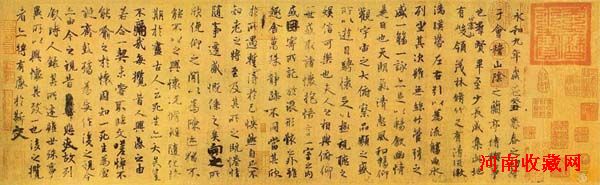 永和九年歲在癸丑暮春之初會
于會稽山陰之蘭亭脩稧事
也羣賢畢至少長咸集此地
有崇山峻領茂林脩竹又有清流激
湍暎帶左右引以為流觴曲水
列坐其次雖無絲竹管弦之
盛一觴一詠亦足以暢敘幽情
是日也天朗氣清惠風和暢仰
觀宇宙之大俯察品類之盛
所以遊目騁懷足以極視聽之
娛信可樂也夫人之相與俯仰
一世或取諸懷抱悟言一室之內
或因寄所託放浪形骸之外雖
趣舍萬殊靜躁不同當其欣
於所遇蹔得於己怏然自足不
知老之將至及其所之既惓情
隨事遷感慨係之矣向之所
欣俛仰之間以為陳迹猶不
能不以之興懷況脩短隨化終
期於盡古人云死生亦大矣豈
不痛哉每攬昔人興感之由
若合一契未嘗不臨文嗟悼不
能喻之於懷固知一死生為虛
誕齊彭殤為妄作後之視今
亦由今之視昔悲夫故列
敘時人錄其所述雖世殊事
異所以興懷其致一也後之攬
者亦將有感於斯文
河南收藏网